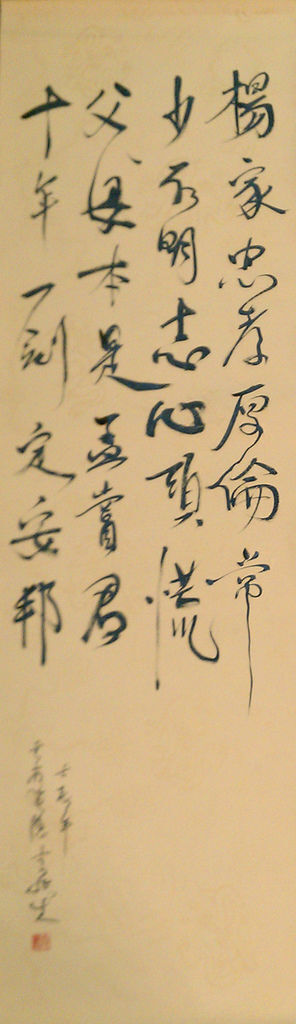 楊家忠孝厚倫常
少不明志心頭慌
父母本是孟嘗君
十年一劍定安邦